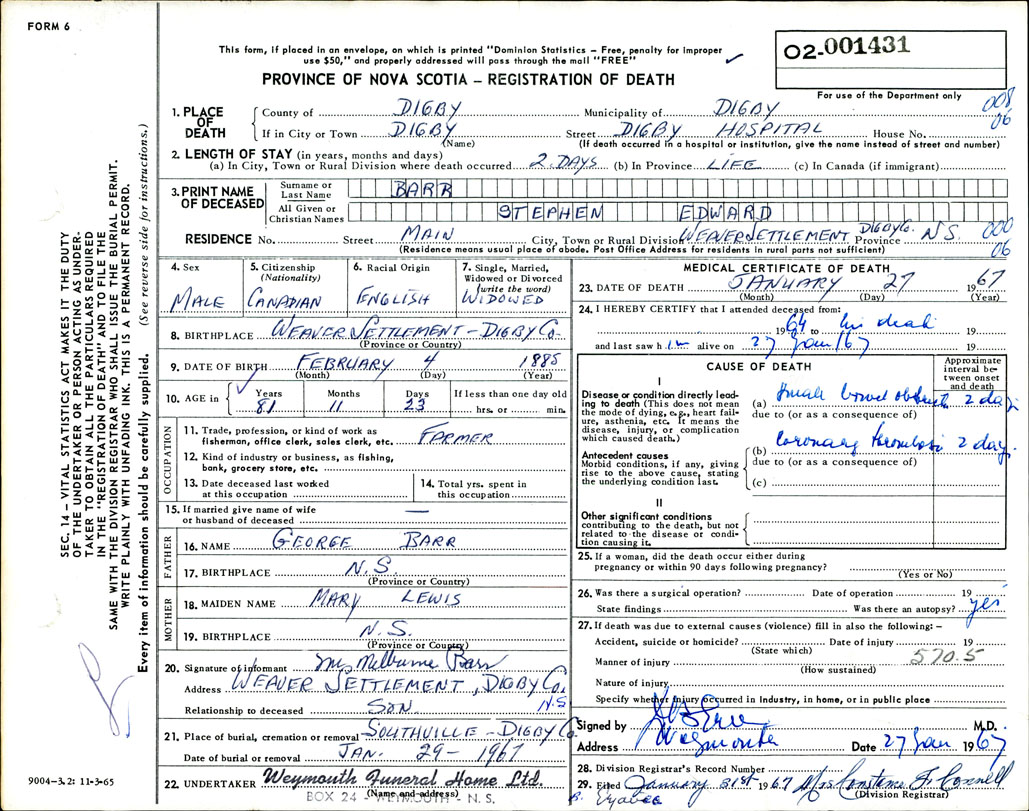 FORM 6
This form, if placed in an envelope, on which is printed "Dominion Statistics – Free, penalty for improper
use $50," and properly addressed will pass through the mail "FREE"
PROVINCE OF NOVA SCOTIA – REGISTRATION OF DEATH
02-001431
For use of the Department only
008
06
1. PLACE OF DEATH
County of DIGBY Municipality of DIGBY
If in City or Town DIGBY Street DIGBY HOSPITAL House No.
(Name) (If death occurred in a hospital or institution, give the name instead of street and number)
2. LENGTH OF STAY (in years, months and days)
(a) In City, Town or Rural Division where death occurred 2 DAYS (b) In Province LIFE (c) In Canada (if immigrant)
3. PRINT NAME OF DECEASED
Surname or Last Name BARR
All Given or Christian Names STEPHEN EDWARD
RESIDENCE No. Street MAIN City, Town or Rural Division WEAVER SETTLEMENT DIGBY Co. Province N.S.
(Residence means usual place of abode. Post Office Address for residents in rural parts not sufficient)
000
06
4. Sex
MALE
5. Citizenship
(Nationality)
CANADIAN
6. Racial Origin
ENGLISH
7. Single, Married,
Widowed or Divorced
(write the word)
WIDOWED
8. BIRTHPLACE WEAVER SETTLEMENT – DIGBY Co.
(Province or Country)
9. DATE OF BIRTH FEBRUARY 4 1885
(Month) (Day) (Year)
10. AGE in
Years Months Days If less than one day old
81 11 23 hrs. or min.
OCCUPATION
11. Trade, profession, or kind of work as
fisherman, office clerk, sales clerk, etc. FARMER
12. Kind of industry or business, as fishing,
bank, grocery store, etc.
13. Date deceased last worked
at this occupation
14. Total yrs. spent in
this occupation
15. If married give name of wife
or husband of deceased —
FATHER
16. NAME GEORGE BARR
17. BIRTHPLACE N.S.
(Province or Country)
MOTHER
18. MAIDEN NAME MARY LEWIS
19. BIRTHPLACE N.S.
(Province or Country)
20. Signature of informant Mrs Melburne Barr
Address WEAVER SETTLEMENT, DIGBY Co.
N.S
Relationship to deceased SON
21. Place of burial, cremation or removal SOUTHVILLE – DIGBY Co
Date of burial or removal JAN. 29 – 1967
22. UNDERTAKER Weymouth Funeral Home Ltd.
(Name and address)
BOX 24 - WEYMOUTH - N. S.
MEDICAL CERTIFICATE OF DEATH
23. DATE OF DEATH JANUARY 27 1967
(Month) (Day) (Year)
24. I HEREBY CERTIFY that I attended deceased from:
1964 to his death 19
and last saw h im alive on 27 Jan/67 19
CAUSE OF DEATH
Approximate
interval be-
tween onset
and death
I
Disease or condition directly lead-
ing to death (This does not mean
the mode of dying, e.g., heart fail-
ure, asthenia, etc. It means the
disease, injury, or complication
which caused death.)
(a) Small bowel obstruct 2 day
due to (or as a consequence of)
Antecedent causes
Morbid conditions, if any, giving
rise to the above cause, stating
the underlying condition last.
(b) Coronary thrombosis 2 day
due to (or as a consequence of)
(c)
II
Other significant conditions
contributing to the death, but not
related to the disease or condi-
tion causing it.
25. If a woman, did the death occur either during
pregnancy or within 90 days following pregnancy?
(Yes or No)
26. Was there a surgical operation? Date of operation 19
State findings Was there an autopsy? yes
27. If death was due to external causes (violence) fill in also the following: –
Accident, suicide or homicide? Date of injury 19
(State which)
570.5
Manner of injury
(How sustained)
Nature of injury
Specify whether injury occurred in industry, in home, or in public place
Signed by M.D.
Address Weymouth Date 27 Jan 1967
28. Division Registrar's Record Number
29. Filed January 31st 1967 Mrs Constance F Connell
(Division Registrar)
SEC. 14 – VITAL STATISTICS ACT MAKES IT THE DUTY
OF THE UNDERTAKER OR PERSON ACTING AS UNDER-
TAKER TO OBTAIN ALL THE PARTICULARS REQUIRED
IN THE "REGISTRATION OF DEATH" AND TO FILE THE
SAME WITH THE DIVISION REGISTRAR WHO SHALL ISSUE THE BURIAL PERMIT.
WRITE PLAINLY WITH UNFADING INK. THIS IS A PERMANENT RECORD.
Every item of information should be carefully supplied. (See reverse side for instructions.)
9004-3.2: 11-3-65